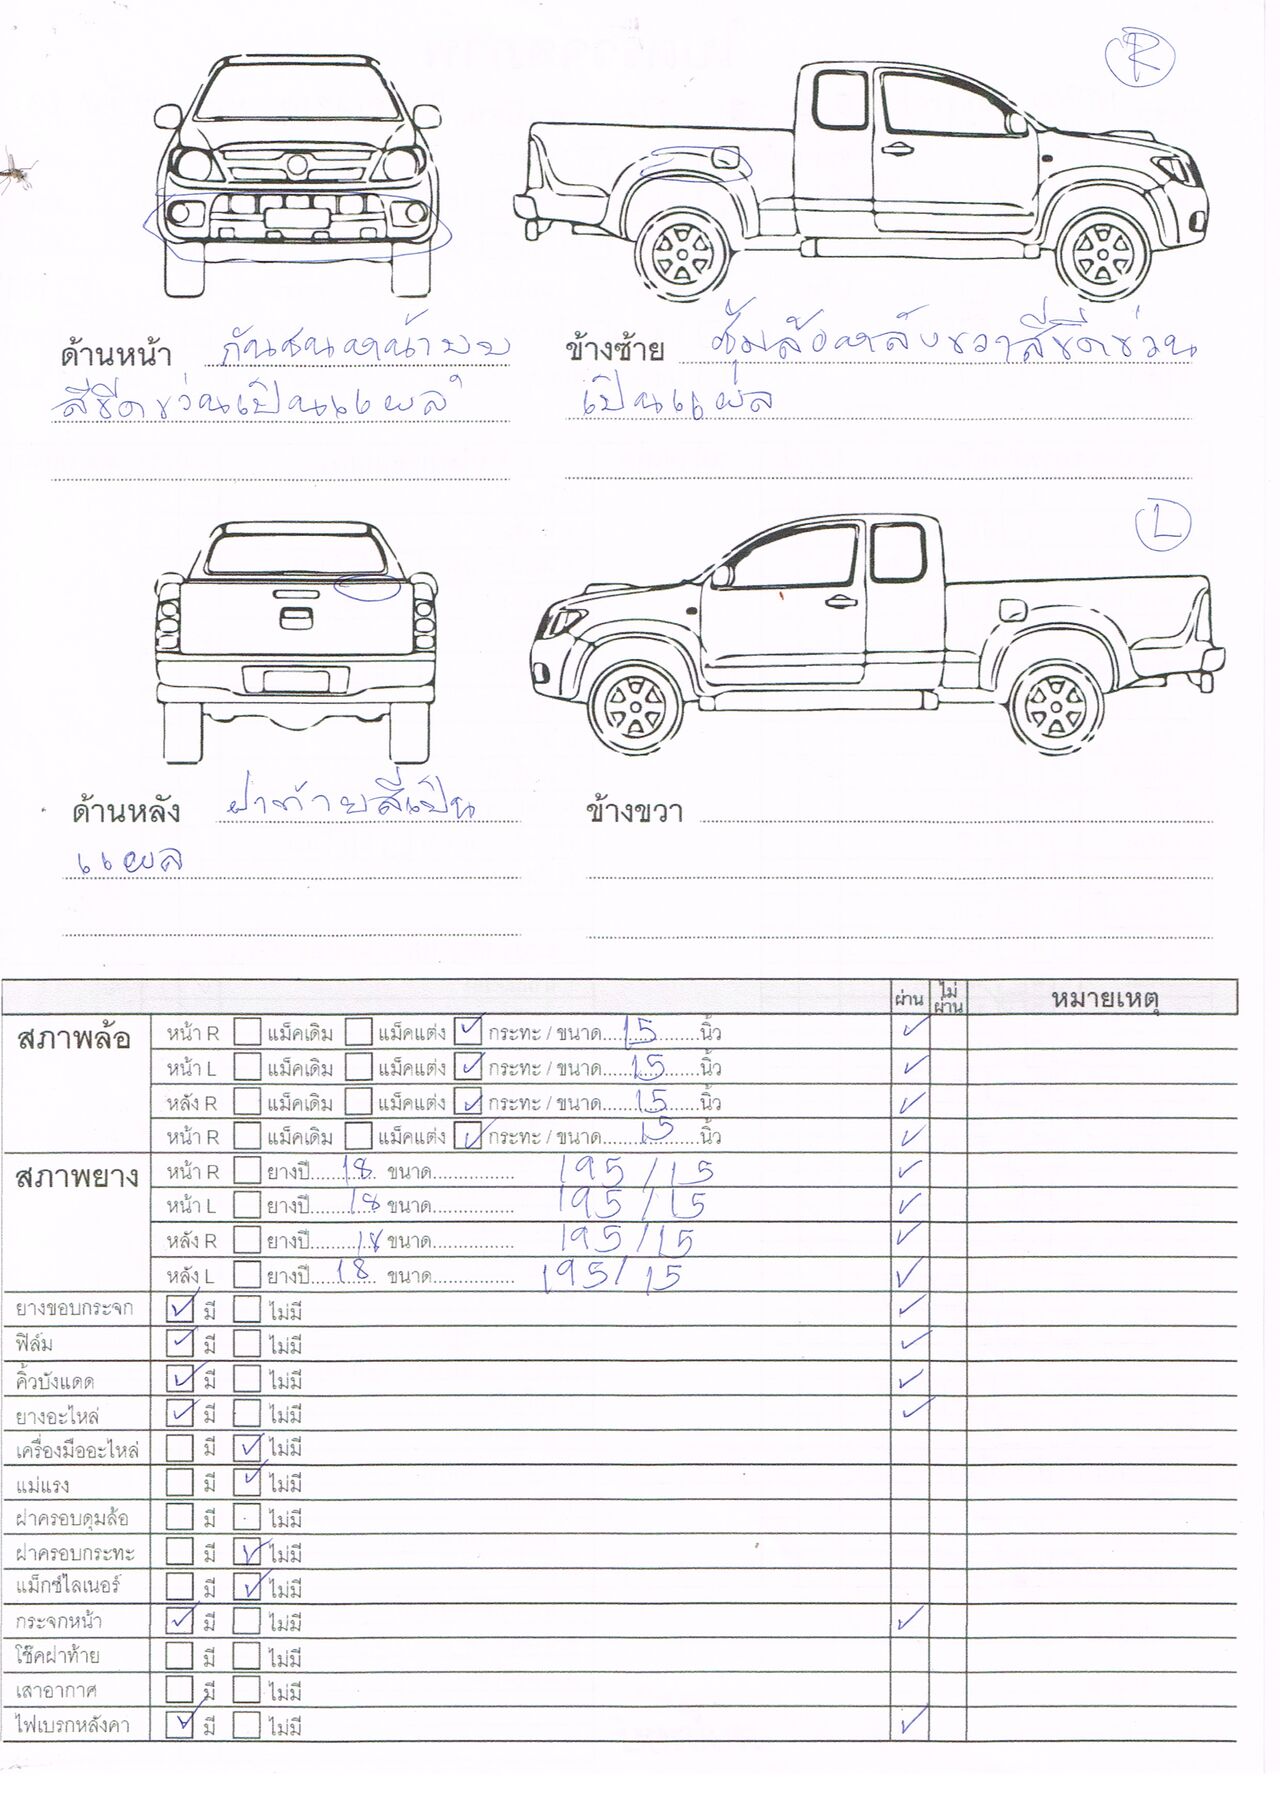 R
ด้านหน้า กันชนหน้าบุบ
สีขีดข่วนเป็นแผล
ข้างซ้าย ซุ้มล้อหลังขวาสีขีดข่วน
เป็นแผล
L
ด้านหลัง ฝาท้ายสีเป็น
แผล
ข้างขวา
ผ่าน ไม่ผ่าน หมายเหตุ
สภาพล้อ หน้า R แม็คเดิม แม็คแต่ง ✓ กระทะ / ขนาด 15 นิ้ว ✓
หน้า L แม็คเดิม แม็คแต่ง ✓ กระทะ / ขนาด 15 นิ้ว ✓
หลัง R แม็คเดิม แม็คแต่ง ✓ กระทะ / ขนาด 15 นิ้ว ✓
หน้า R แม็คเดิม แม็คแต่ง ✓ กระทะ / ขนาด 15 นิ้ว ✓
สภาพยาง หน้า R ยางปี 18 ขนาด 195/15 ✓
หน้า L ยางปี 18 ขนาด 195/15 ✓
หลัง R ยางปี 18 ขนาด 195/15 ✓
หลัง L ยางปี 18 ขนาด 195/15 ✓
ยางขอบกระจก ✓ มี ไม่มี ✓
ฟิล์ม ✓ มี ไม่มี ✓
คิ้วบังแดด ✓ มี ไม่มี ✓
ยางอะไหล่ ✓ มี ไม่มี ✓
เครื่องมืออะไหล่ มี ✓ ไม่มี
แม่แรง มี ✓ ไม่มี
ฝาครอบดุมล้อ มี ไม่มี
ฝาครอบกระทะ มี ✓ ไม่มี
แม็กซ์ไลเนอร์ มี ✓ ไม่มี
กระจกหน้า ✓ มี ไม่มี ✓
โช๊คฝาท้าย มี ไม่มี
เสาอากาศ มี ไม่มี
ไฟเบรกหลังคา ✓ มี ไม่มี ✓